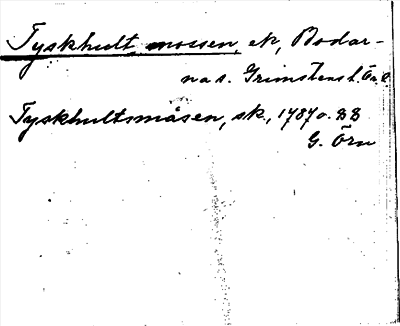 Tyskhult, mossen, ek, Bodar-
na s. Grimstens h. Ör. l.
Tyskhultsmåsen, sk., 1787 o. BB
G. Örn